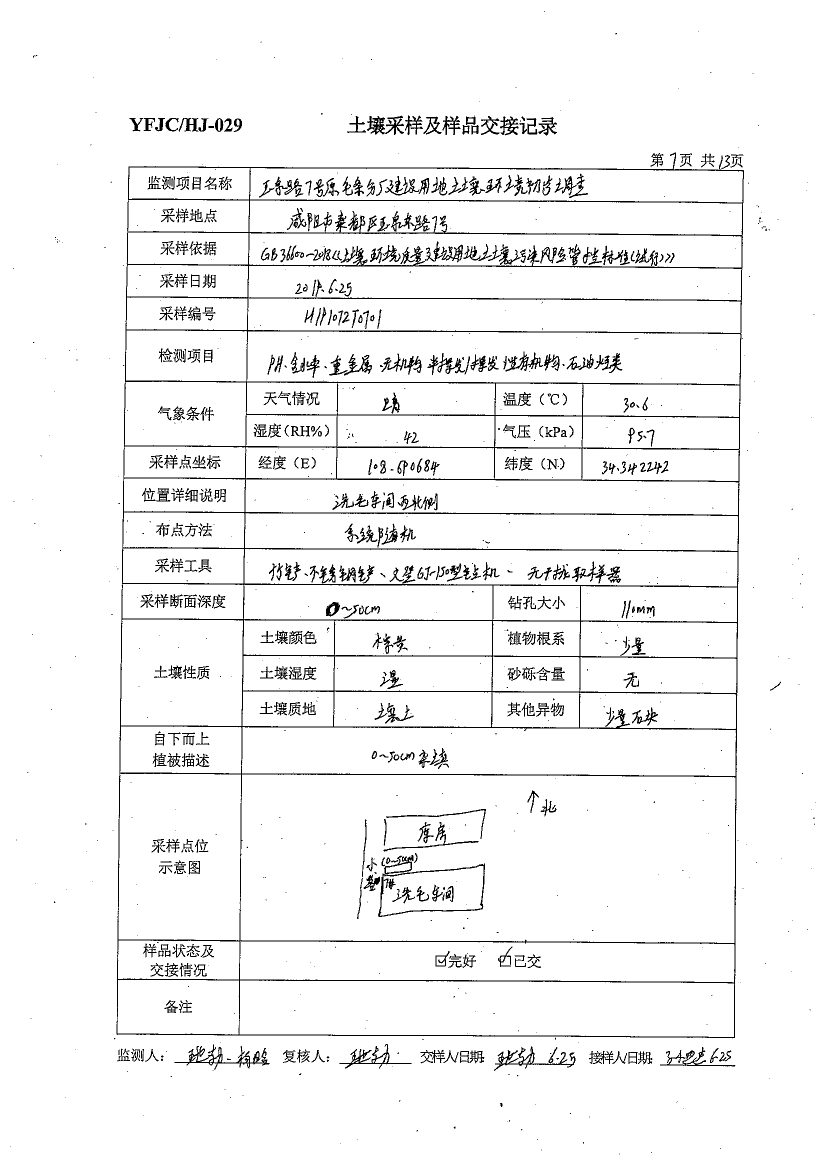 YFJC/HJ-029 土壤采样及样品交接记录
第7页 共13页
监测项目名称 玉泉路7号原毛条分厂建设用地土壤环境初步调查
采样地点 咸阳市秦都区玉泉东路7号
采样依据 GB36600-2018《土壤环境质量建设用地土壤污染风险管控标准(试行)》
采样日期 2019.6.25
采样编号
检测项目 PH、含水率、重金属、无机物 半挥发/挥发性有机物、石油烃类
气象条件 天气情况 晴 温度(℃) 30.6
湿度(RH%) 42 气压(kPa) 95.7
采样点坐标 经度(E) 108.690684 纬度(N) 34.342242
位置详细说明 洗毛车间西北侧
布点方法 系统随机
采样工具 竹铲、不锈钢铲、GJ-150型 机、 无干扰取样器
采样断面深度 0~50cm 钻孔大小 110mm
土壤性质 土壤颜色 棕黄 植物根系 少量
土壤湿度 湿 砂砾含量 无
土壤质地 壤土 其他异物 少量石块
自下而上
植被描述 0~50cm 杂填
↑北
库房
采样点位
示意图
小 (0~50cm)
7#
洗毛车间
样品状态及
交接情况 ☑完好 ☑已交
备注
监测人: 复核人: 交样人/日期: 6.25 接样人/日期: 6.25